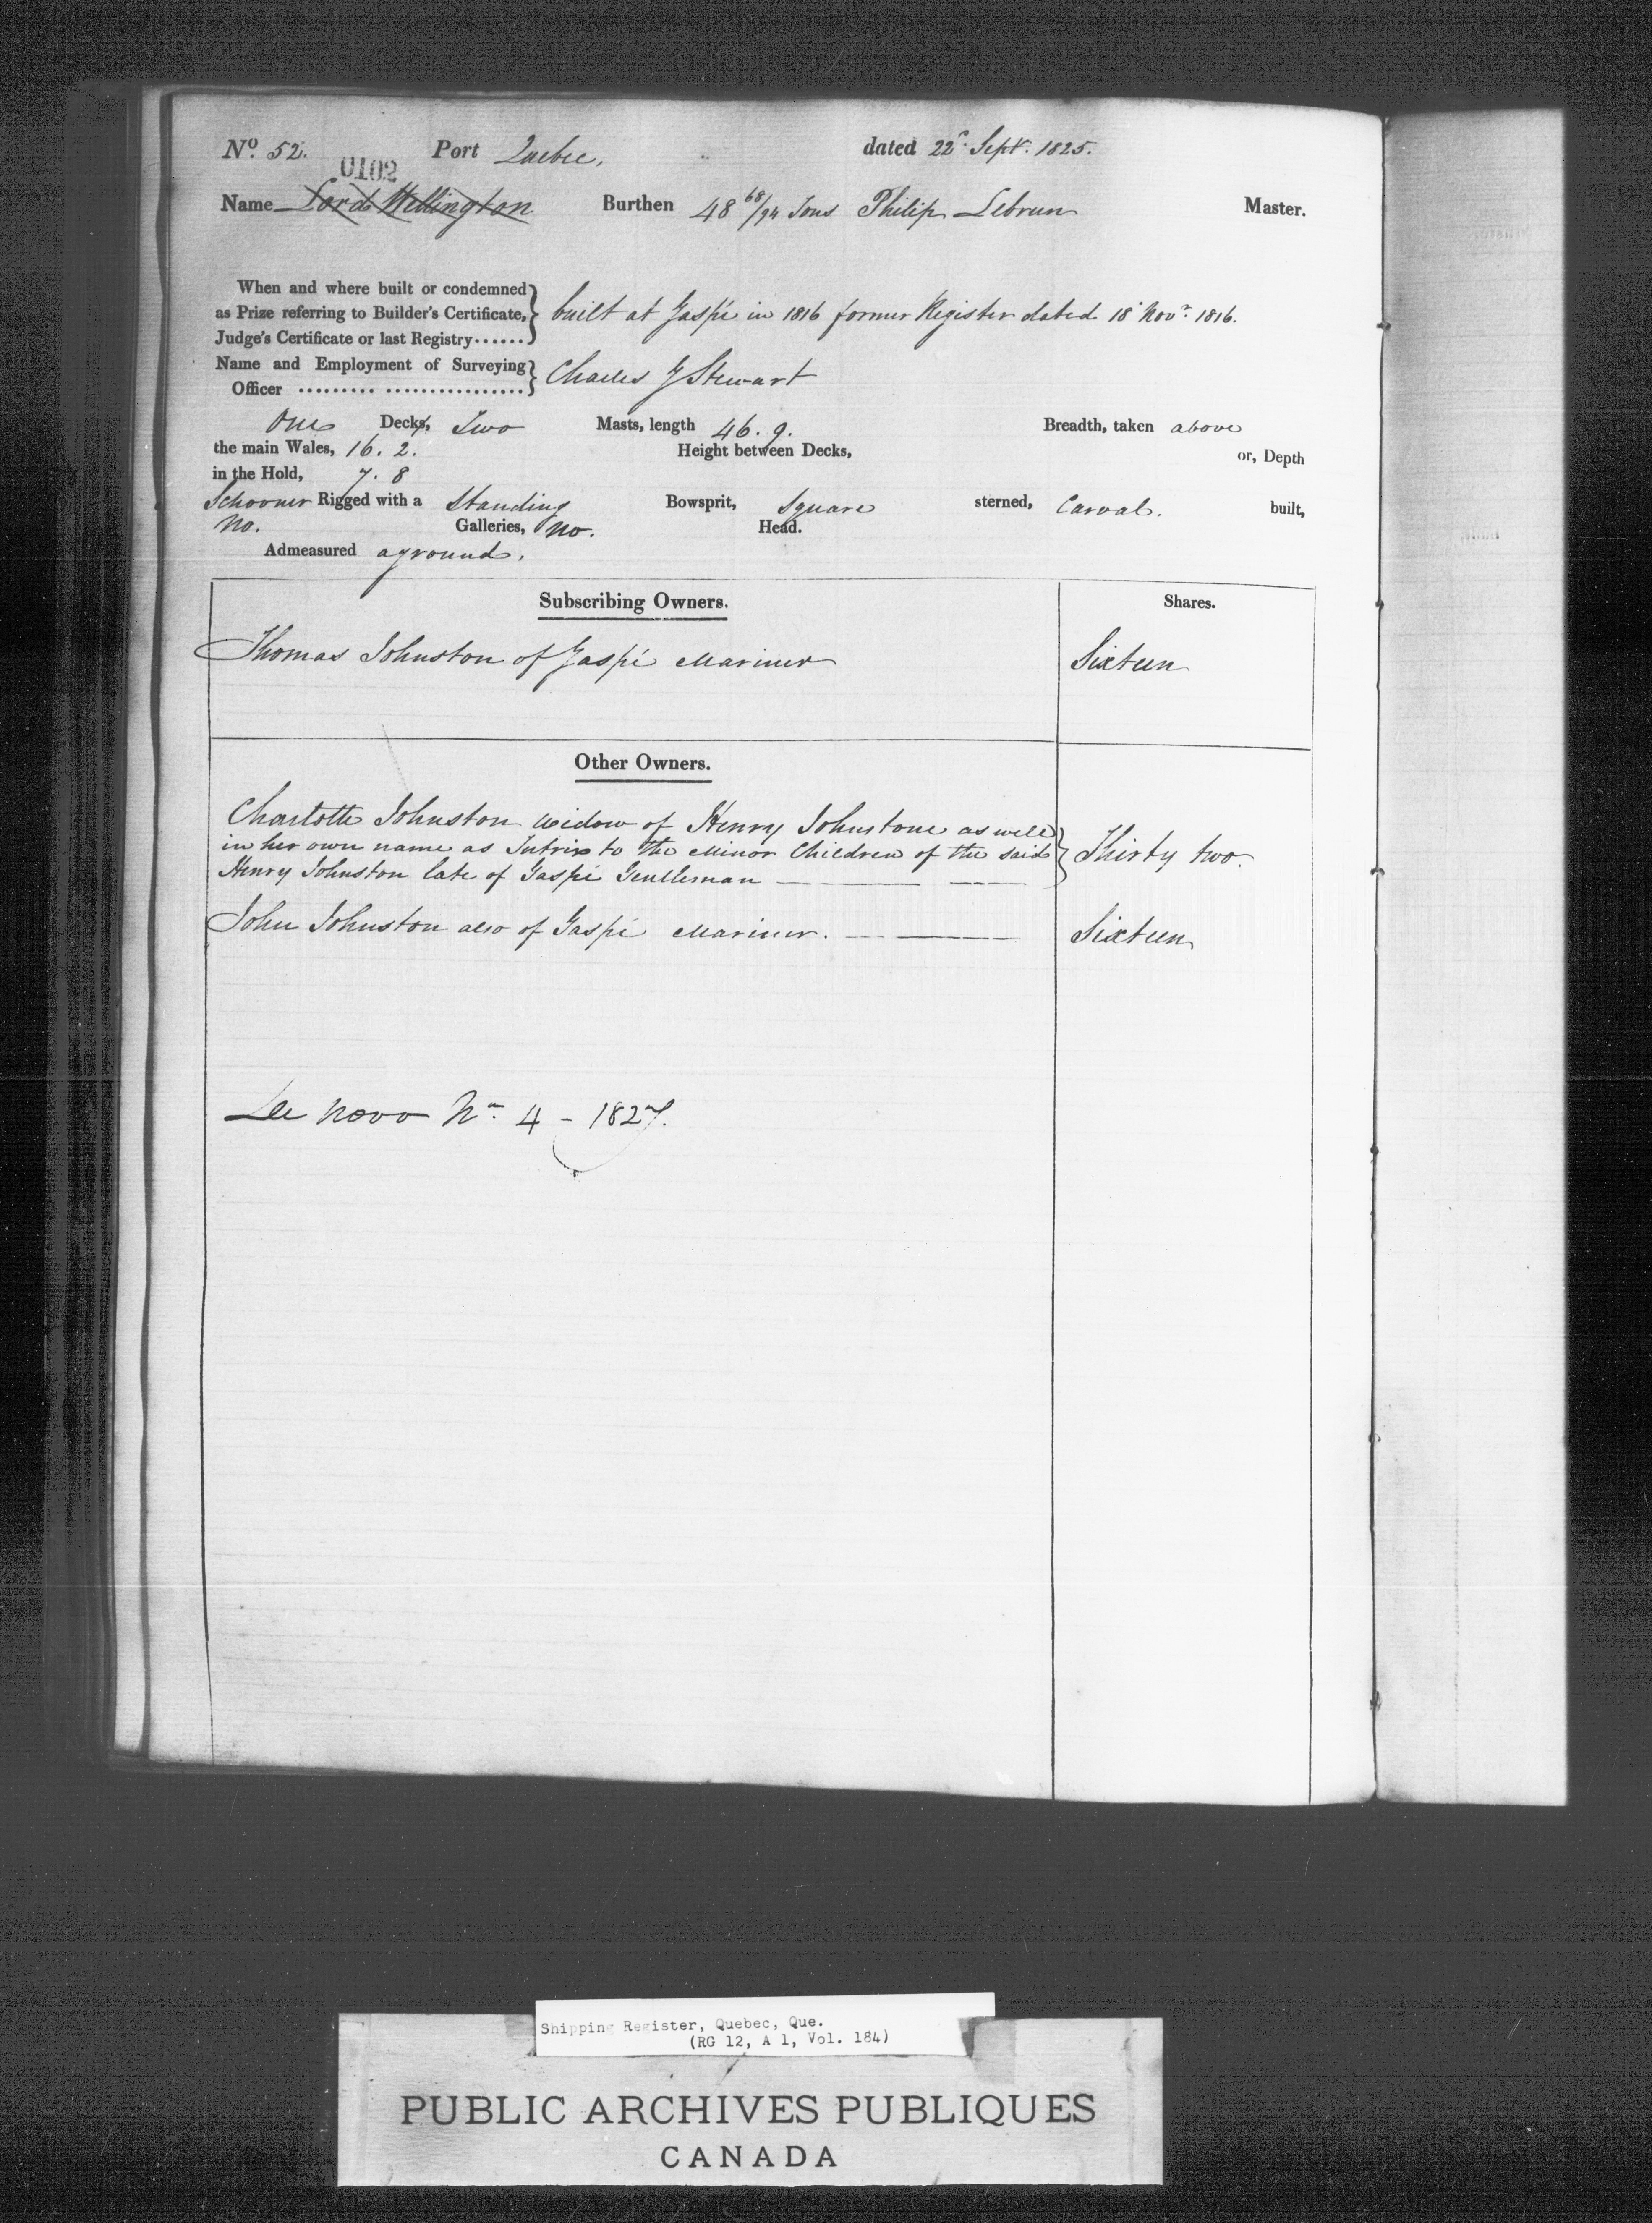 No. 52. Port Quebec, dated 22d Septr. 1825.
0102
Name Lord Wellington Burthen 48 68/94 Tons Philip Lebrun Master.
When and where built or condemned
as Prize referring to Builder's Certificate, } built at Gaspé in 1816 former Register dated 18 Novr. 1816.
Judge's Certificate or last Registry......
Name and Employment of Surveying } Charles G Stewart
Officer ......... ................
One Decks, Two Masts, length 46. 9. Breadth, taken above
the main Wales, 16. 2. Height between Decks, or, Depth
in the Hold, 7. 8
Schooner Rigged with a Standing Bowsprit, Square sterned, Carval. built,
No. Galleries, No. Head.
Admeasured aground.
Subscribing Owners. Shares.
Thomas Johnston of Gaspé Mariner Sixteen
Other Owners.
Charlotte Johnston widow of Henry Johnstone as well
in her own name as Tutrix to the Minor Children of the said } Thirty two.
Henry Johnston late of Gaspé Gentleman
John Johnston also of Gaspé Mariner. Sixteen
De novo No. 4 - 1827.
Shipping Register, Quebec, Que.
(RG 12, A 1, Vol. 184)
PUBLIC ARCHIVES PUBLIQUES
CANADA